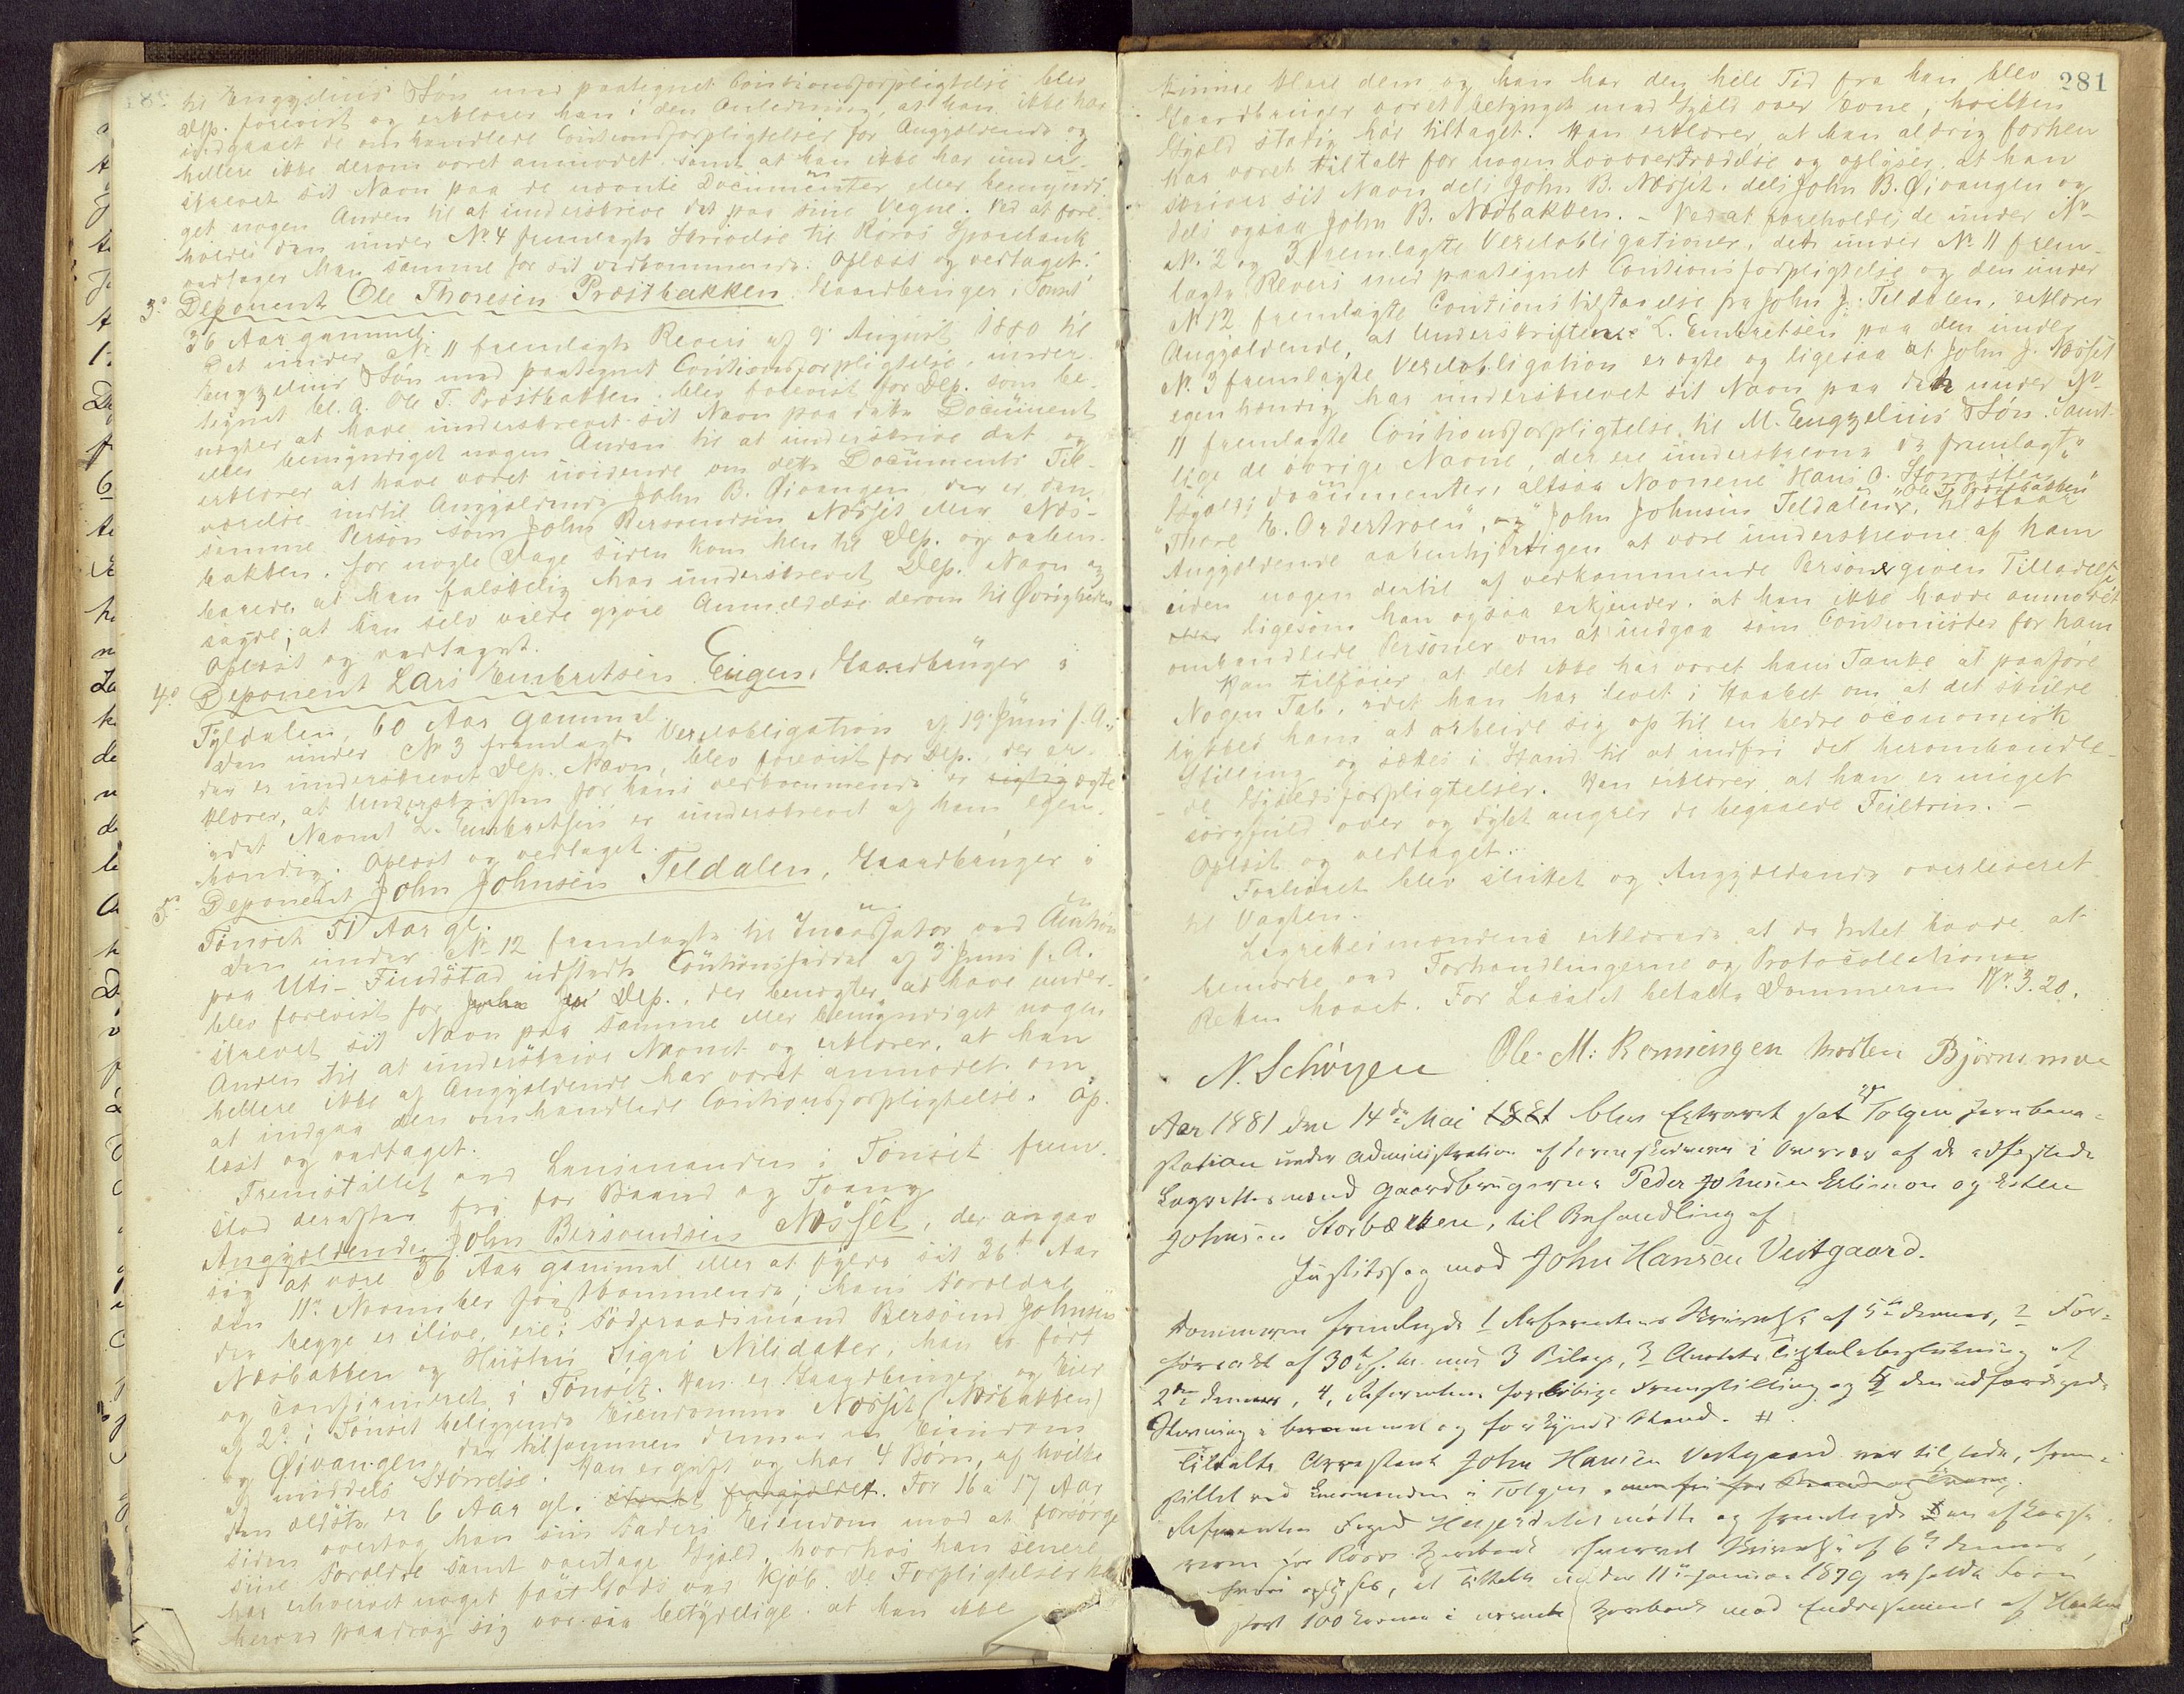 til Engzelius & Søn med paategnet Cautionsforpligtelse blev
Dep. forevist og erklærer han i den Anledning, at han ikke har
indgaaet de omhandlede Cautionsforpligtelser for Angjældende og
hellere ikke derom været anmodet samt at han ikke har under-
skrevet sit Navn paa de nævnte Documenter eller bemyndi-
get nogen Anden til at underskrive det paa sine Vegne. Ved at fore-
holdes den under No. 4 fremlagte Skrivelse til Røros Sparebank
vedtager han samme for sit vedkommende. Oplæst og vedtaget.
3o Deponent Ole Thoresen Præstbakken, Gaardbruger i Tønset
36 Aar gammel.
Det under No. 11 fremlagte Revers af 9 August 1880 til
Engzelius & Søn med paategnet Cautionsforpligtelse, under-
tegnet bl. a. Ole T. Præstbakken, blev forevist for Dep. som be-
nægter at have underskrevet sit Navn paa dette Document
eller bemyndiget nogen Anden til at underskrive det og
erklærer at have været uvidende om dette Documents Til-
værelse indtil Angjældende John B. Øivangen der er den
samme Person som John Bersvendsen Næsset eller Næs-
bakken, for nogle Dage siden kom hen til Dep. og aaben-
barede, at han falskelig har underskrevet Dep. Navn og
sagde, at han selv vilde gjøre Anmeldelse derom til Øvrigheden
Oplæst og vedtaget.
4o Deponent Lars Embretsen Eugen, Gaardbruger i
Tyldalen, 60 Aar gammel.
Den under No 3 fremlagte Vexelobligation af 19 Juni f. A.,
der er underskrevet Dep. Navn, blev forevist for Dep., der er-
klærer, at Underskriften for hans vedkommende er rigtig ægte
idet Navnet "L. Embretsen" er underskrevet af ham egen-
hændig. Oplæst og vedtaget.
5o Deponent John Johnsen Teldalen, Gaardbruger i
Tønset 51 Aar gl.
Den under No 12 fremlagte til Incassator ved Auction
paa Uti-Findstad udstedte Cautionsseddel af 3 Juni f. A.
blev forevist for John Jo Dep., der benægter at have under-
skrevet sit Navn paa samme eller bemyndiget nogen
Anden til at underskrive Navnet og erklærer, at han
hellere ikke af Angjældende har været anmodet om
at indgaa den omhandlede Cautionsforpligtelse. Op-
læst og vedtaget.
Fremstillet ved Lensmanden i Tønset frem-
stod derefter fri for Baand og Tvang
Angjældende John Bersvendsen Næsset, der angav
sig at være 36 Aar gammel eller at fylde sit 36te Aar
den 11te November førstkommende; hans Forældre
der begge er ilive, ere: Føderaadsmand Bersvend Johnsen
Næsbakken og Hustru Sigri Nilsdatter, han er født
og confirmeret i Tønset. Han er Gaardbruger og Eier
af 2de i Tønset beliggende Eiendomme Næsset (Næsbakken)
og Øivangen, der tilsammen danner en Eiendom
af middels Størrelse. Han er gift og har 4 Børn, af hvilke
den ældste er 6 Aar gl. For 16 a 17 Aar
siden overtog han sin Faders Eiendom mod at forsørge
sine Forældre samt overtage Gjæld, hvorhos han senere
har erhvervet noget fast Gods ved Kjøb. De Forpligtelser han
herved paadrog sig var saa betydelige, at han ikke
281
kunne klare dem og han har den hele Tid fra han blev
Gaardbruger været betynget med Gjæld over Evne, hvilken
Gjæld stadig har tiltaget. Han erklærer, at han aldrig forhen
har været tiltalt for nogen Lovovertrædelse og oplyser, at han
skriver sit Navn dels John B. Næsset, dels John B. Øivangen og
dels ogsaa John B. Næsbakken. – Ved at foreholdes de under No
No. 2 og 3 fremlagte Vexelobligationer, det under No 11 frem-
lagte Revers med paategnet Cautionsforpligtelse og den under
No 12 fremlagte Cautionstilstaaelse fra John J. Teldalen, erklærer
Angjældende, at Underskriften "L. Embretsen" paa den under
No. 3 fremlagte Vexelobligation er ægte og ligesaa at John J. Næsset
egenhændig har underskrevet sit Navn paa den under No
11 fremlagte Cautionsforpligtelse til M. Engzelius & Søn. Samt-
lige de øvrige Navne, der ere underskrevne de fremlagte
Gjældsdocumenter, altsaa Navnene "Hans O. Storrøsten",
"Ole T. Præstbakken"
"Thore E. Ordertroen", og "John Johnsen Teldalen", tilstaar
Angjældende aabenhjertigen at være underskrevne af ham
uden nogen dertil af vedkommende Personer given Tilladelse
ligesom han ogsaa erkjender, at han ikke havde anmodet
omhandlede Personer om at indgaa som Cautionister for ham
Han tilføier at det ikke har været hans Tanke at paaføre
Nogen Tab, idet han har levet i Haabet om at det skulde
lykkes ham at arbeide sig op til en bedre øconomisk
Stilling og sættes i Stand til at indfri det heromhandle-
de Gjældsforpligtelser. Han erklærer, at han er meget
sørgfuld over og dybt angrer de begaaede Feiltrin. –
Oplæst og vedtaget.
Forhøret blev sluttet og Angjældende overleveret
til Vagten.
Lagrettesmændene erklærede at de Intet havde at
bemærke ved Forhandlingerne og Protocollationen
Retten hævet. For Localet betalte Dommeren Kr. 3.20.
N. Schøyen Ole M: Rønningen Morten Bjørnsmoe
Aar 1881 den 14de Mai 1881 blev Extraret sat ved Tolgen Jernbane-
station under Administration af Sorenskriveren i Overvær af de edfæstede
Lagrettesmænd Gaardbrugerne Peder Johnsen Erlimon og Esten
Johnsen Storbækken, til Behandling af
Justitssag mod John Hansen Vestgaard.
Dommeren fremlagde 1 Referentens Skrivelse af 5te dennes, 2 For-
hørsact af 30te f. M. med 3 Bilage, 3 Amtets Tiltalebeslutning af
2den dennes, 4, Referentens foreløbige Fremstilling og 5 den udfærdigede
Stevning i berammet og forkyndt Stand. #
Tiltalte Arrestant John Hansen Vestgaard var tilstede, frem-
stillet ved Lensmanden i Tolgen, men fri for Baand og Tvang
Referenten Foged Hejerdahl mødte og fremlagde en af Casse-
reren for Røros Sparebank Skrivelse af 6te dennes,
hvori oplyses, at Tiltalte under 11te Januar 1879 erholdte Laan
stort 100 Kroner i nævnte Sparebank mod Endossement af